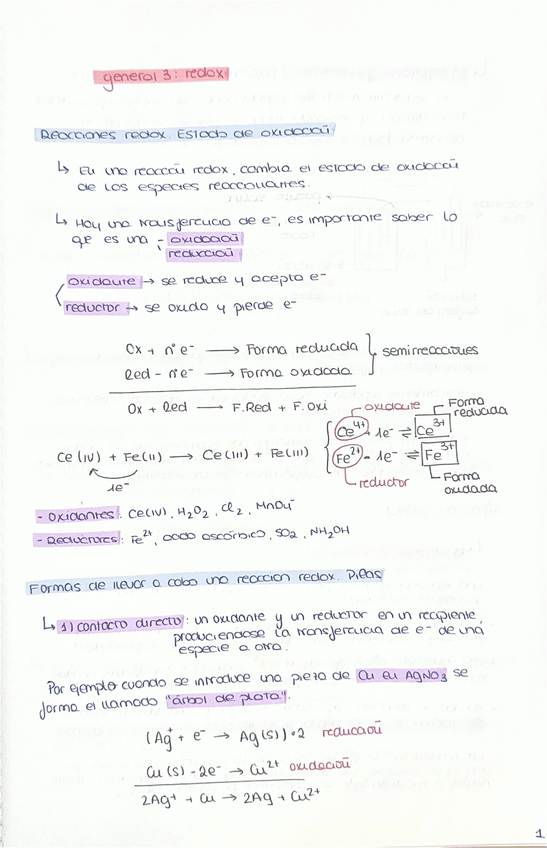 general 3: redox
Reacciones redox. Estado de oxidación
↳ En una reacción redox, cambia el estado de oxidación
de las especies reaccionantes.
↳ Hay una transferencia de e⁻, es importante saber lo
que es una - oxidación
reducción
oxidante → se reduce y acepta e⁻
reductor → se oxida y pierde e⁻
Ox + nº e⁻ → Forma reducida
Red - nº e⁻ → Forma oxidada
semirreacciones
Ox + Red → F.Red + F.Oxi
oxidante
Forma
reducida
Ce⁴⁺ 1e⁻ ⇌ Ce³⁺
Ce(IV) + Fe(II) → Ce(III) + Fe(III)
1e⁻
Fe²⁺ - 1e⁻ ⇌ Fe³⁺
reductor
Forma
oxidada
- Oxidantes: Ce(IV), H₂O₂, Cl₂, MnO₄⁻
- Reductores: Fe²⁺, ácido ascórbico, SO₂, NH₂OH
Formas de llevar a cabo una reacción redox. Pilas
↳ 1) contacto directo: un oxidante y un reductor en un recipiente,
produciéndose la transferencia de e⁻ de una
especie a otra.
Por ejemplo cuando se introduce una pieza de Cu en AgNO₃ se
forma el llamado "árbol de plata".
(Ag⁺ + e⁻ → Ag(s))·2 reducción
Cu(s) - 2e⁻ → Cu²⁺ oxidación
2Ag⁺ + Cu → 2Ag + Cu²⁺
1